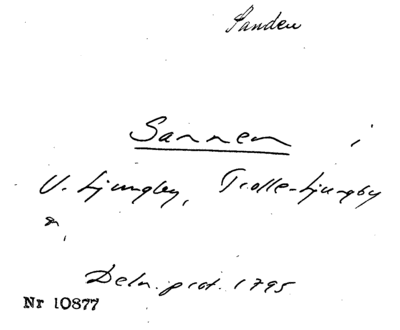 Sanden
Sannen i
V. Ljungby, Trolle-Ljungby
Deln. prot. 1795
Nr 10877